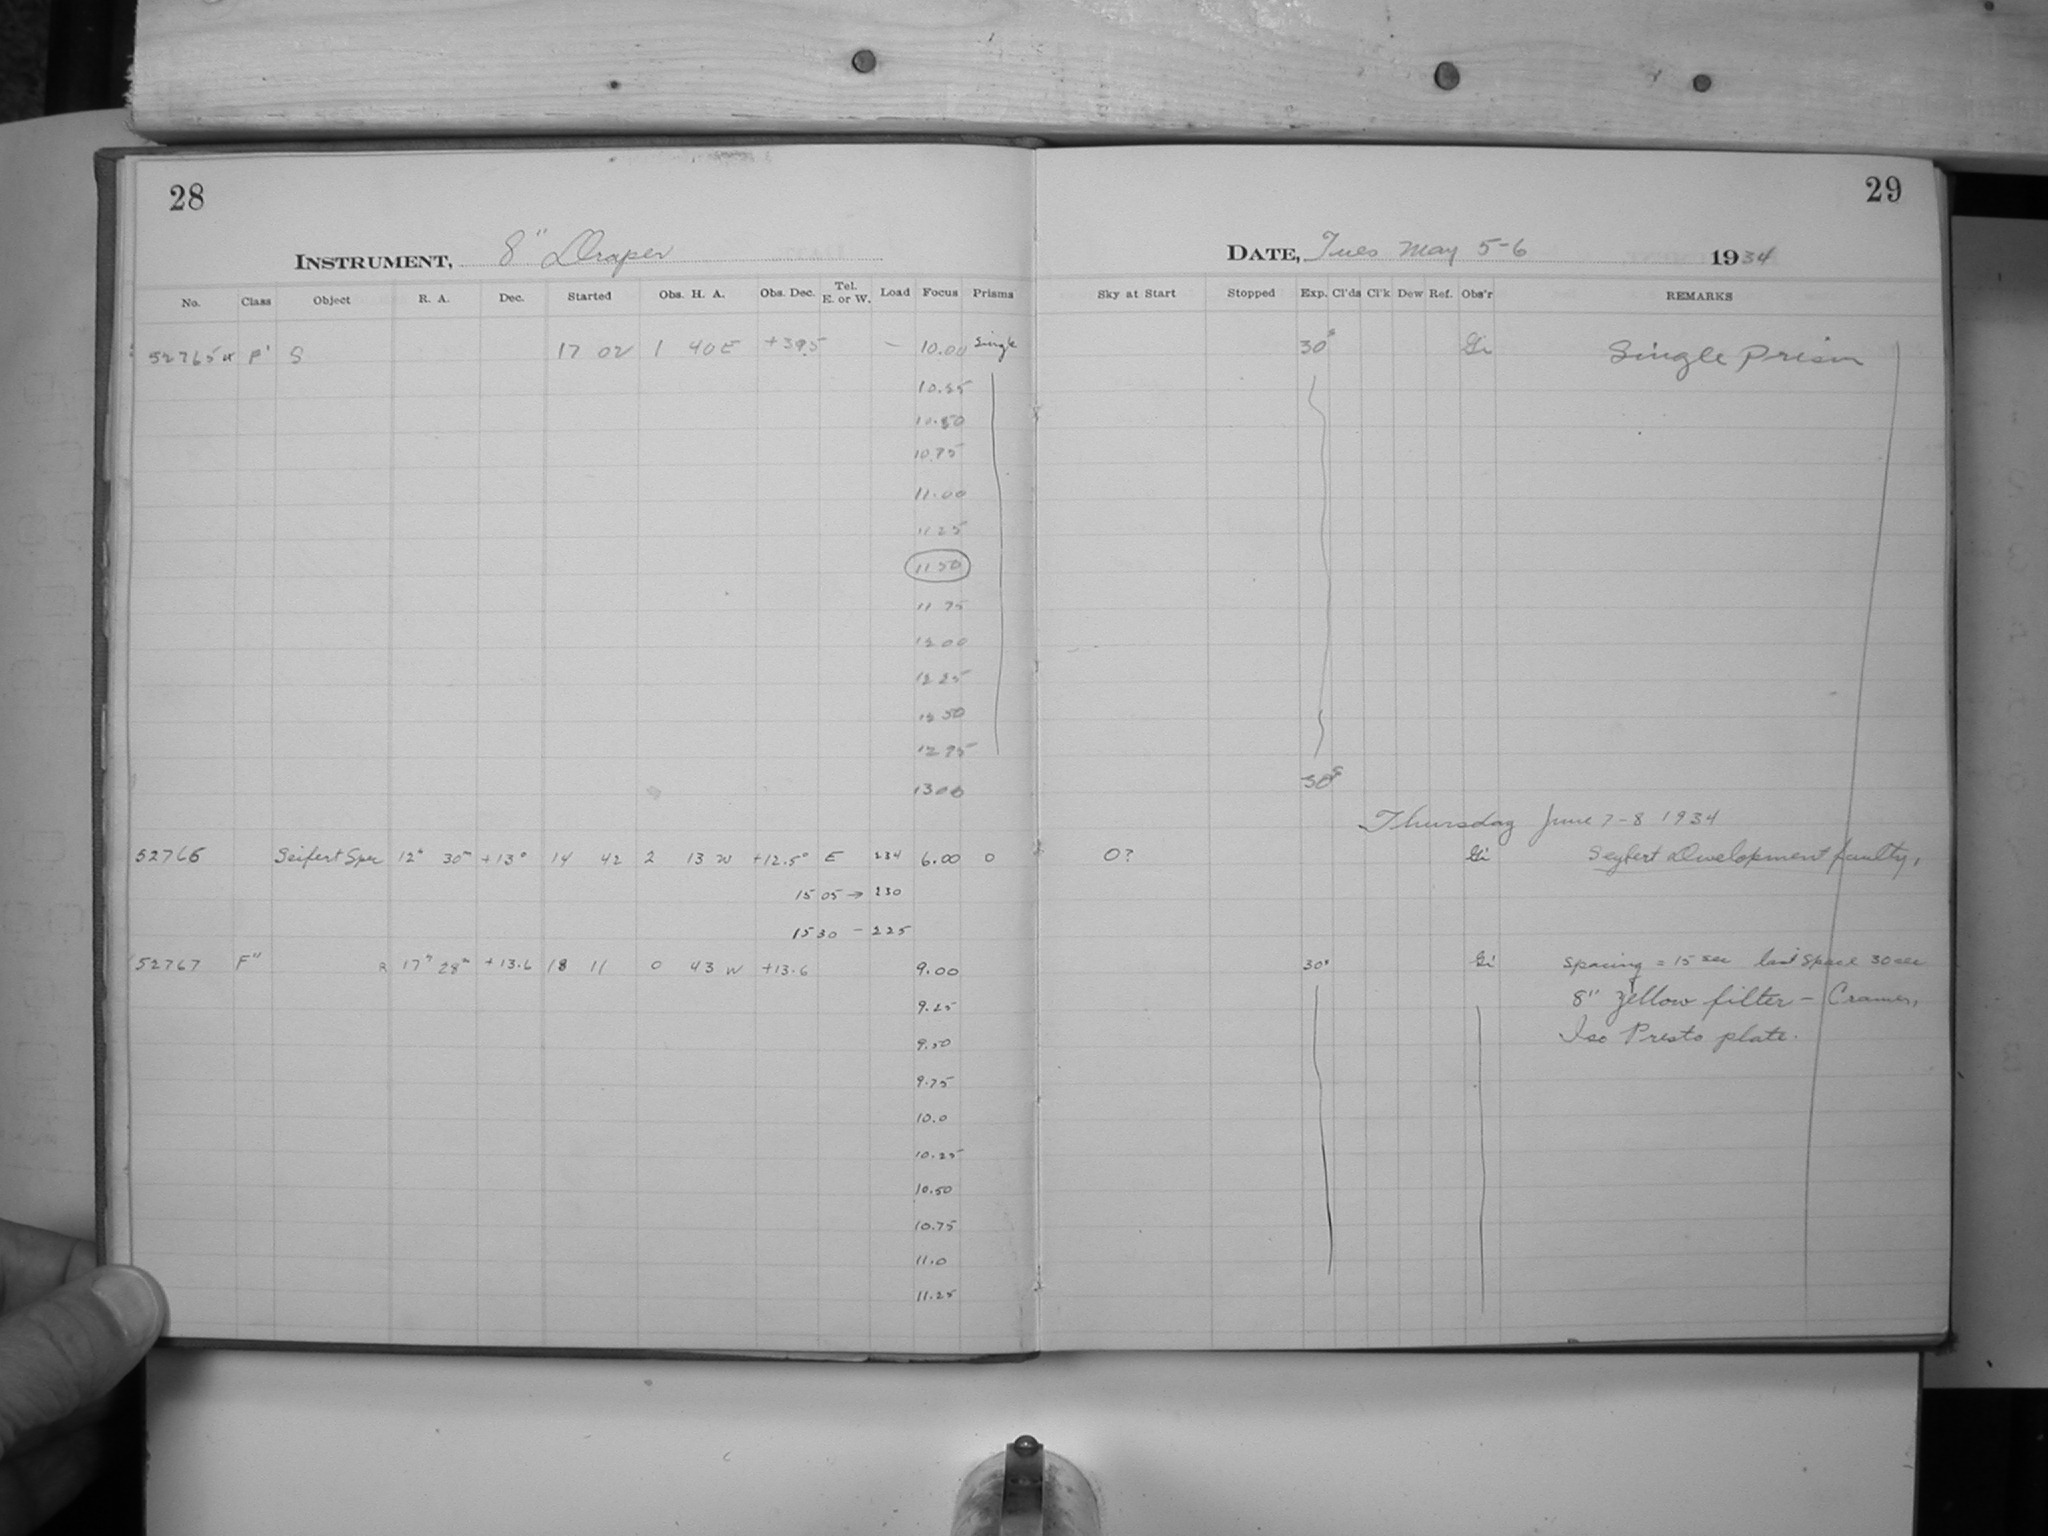 28
29
INSTRUMENT, 8" Draper
DATE, Tues May 5-6 1934
No. Class Object R. A. Dec. Started Obs. H. A. Obs. Dec. Tel. E. or W. Load Focus Prisms Sky at Start Stopped Exp. Cl'ds Cl'k Dew Ref. Obs'r REMARKS
52765 F' S 17 02 1 40 E +39.5 – 10.00 Single 30s Gi Single Prism
10.25
10.50
10.75
11.00
11 25
11 50
11 75
12 00
12 25
12 50
12 75
13 00 30s
Thursday June 7-8 1934
52766 Seifert Spec 12h 30m +13° 14 42 2 13 W +12.5° E 234 6.00 0 0? Gi Seyfert Development faulty,
15 05 → 230
15 30 – 225
52767 F" R 17h 28m +13.6 18 11 0 43 W +13.6 9.00 30s Gi Spacing = 15 sec last space 30 sec
9.25 8" Yellow filter – Cramer,
9.50 Iso Presto plate.
9.75
10.0
10.25
10.50
10.75
11.0
11.25